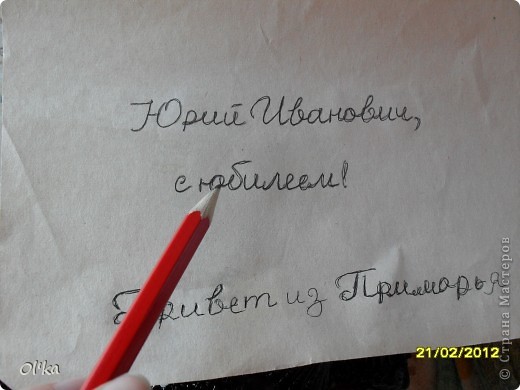 Юрий Иванович,
с юбилеем!
Привет из Приморья
21/02/2012
Ol'ka
© Страна Мастеров